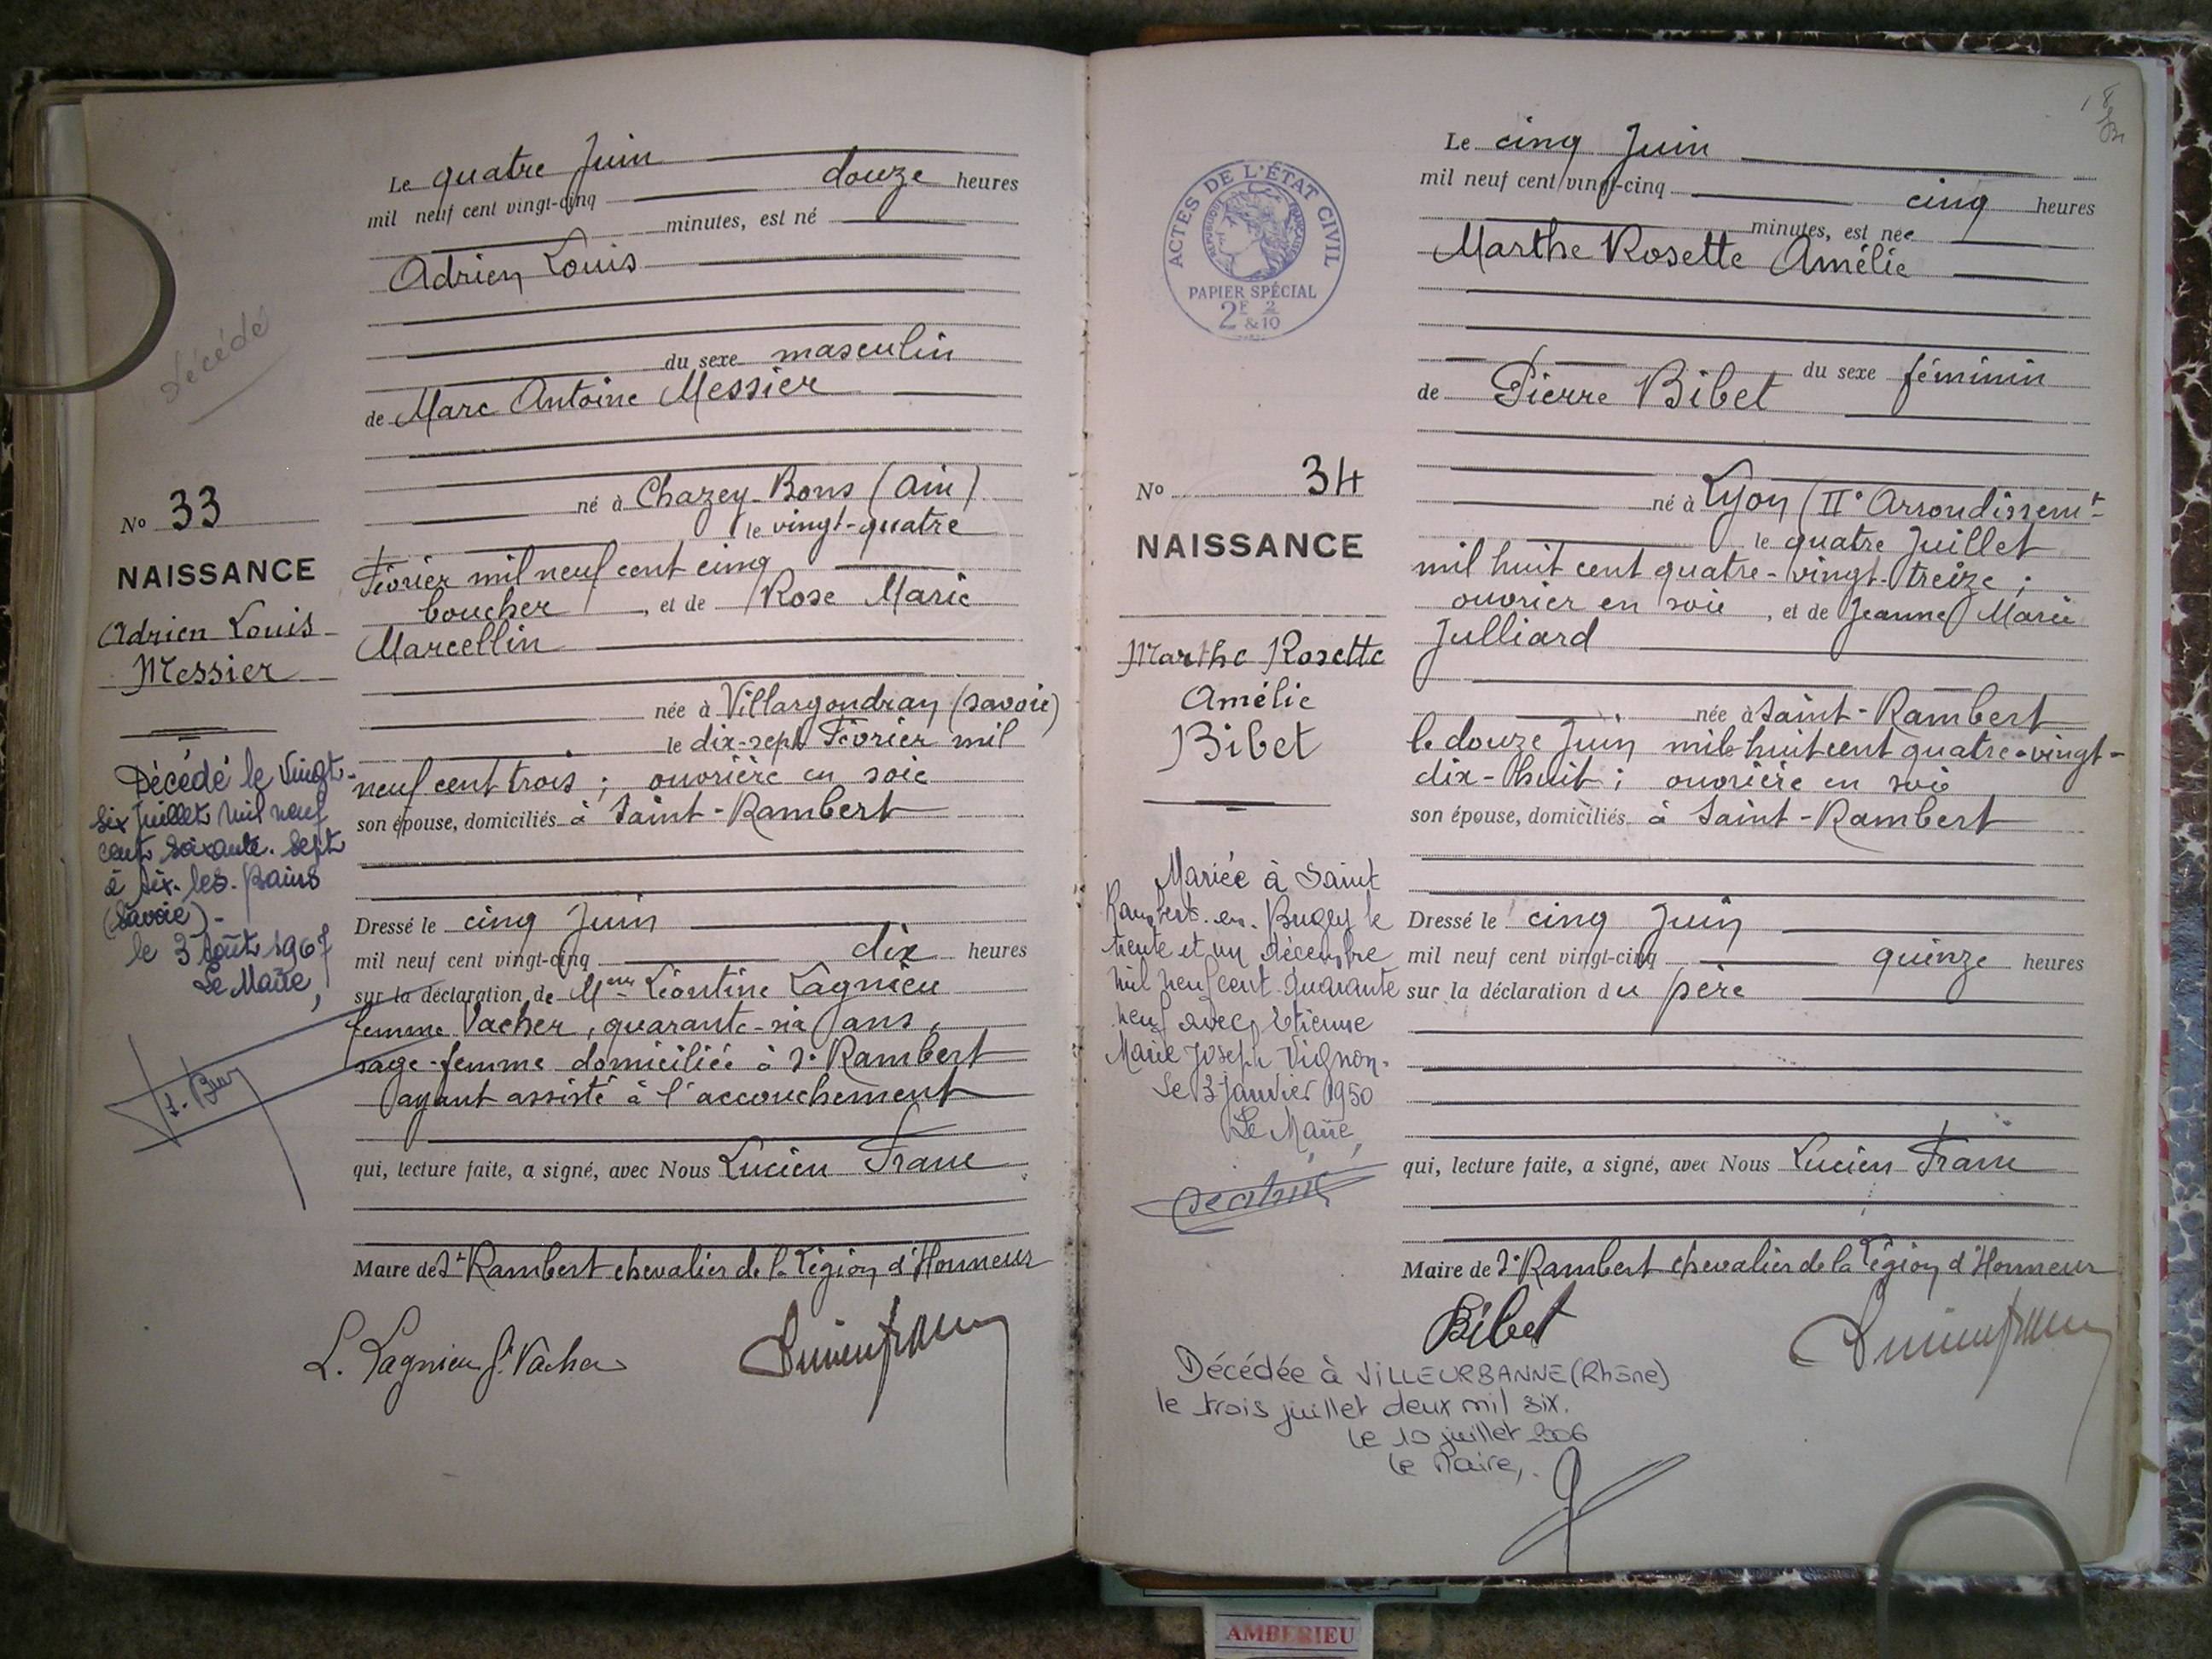 Le quatre Juin
mil neuf cent vingt-cinq douze heures
minutes, est né
Adrien Louis
du sexe masculin
de Marc Antoine Messier
né à Chazey-Bons (Ain)
le vingt-quatre
Février mil neuf cent cinq
boucher, et de Rose Marie
Marcellin
née à Villargondran (Savoie)
le dix-sept Février mil
neuf cent trois ; ouvrière en soie
son épouse, domiciliés à Saint-Rambert
Dressé le cinq Juin
mil neuf cent vingt-cinq dix heures
sur la déclaration de Mme Léontine Lagnieu
femme Vacher, quarante-six ans,
sage-femme domiciliée à St Rambert
ayant assisté à l'accouchement
qui, lecture faite, a signé, avec Nous Lucien Franc
Maire de St Rambert chevalier de la Légion d'Honneur
L. Lagnieu f. Vacher
décédé
No 33
NAISSANCE
Adrien Louis
Messier
Décédé le vingt-
six juillet mil neuf
cent soixante-sept
à Aix-les-Bains
(Savoie)-
le 3 Août 1967
Le Maire,
ACTES DE L'ÉTAT CIVIL
RÉPUBLIQUE FRANÇAISE
PAPIER SPÉCIAL
2E 2
&10
No 34
NAISSANCE
Marthe Rosette
Amélie
Bibet
Mariée à Saint
Rambert-en-Bugey le
trente et un décembre
mil neuf cent quarante
neuf avec Etienne
Marie Joseph Vignon.
Le 3 janvier 1950
Le Maire,
Le cinq Juin
mil neuf cent vingt-cinq cinq heures
minutes, est née
Marthe Rosette Amélie
du sexe féminin
de Pierre Bibet
né à Lyon (IIe Arrondissemt
le quatre Juillet
mil huit cent quatre-vingt-treize ;
ouvrier en soie, et de Jeanne Marie
Julliard
née à Saint-Rambert
le douze Juin mil huit cent quatre-vingt-
dix-huit ; ouvrière en soie
son épouse, domiciliés à Saint-Rambert
Dressé le cinq Juin
mil neuf cent vingt-cinq quinze heures
sur la déclaration du père
qui, lecture faite, a signé, avec Nous Lucien Franc
Maire de St Rambert chevalier de la Légion d'Honneur
Bibet
Décédée à VILLEURBANNE (Rhône)
le trois juillet deux mil six.
le 10 juillet 2006
le Maire,
AMBERIEU